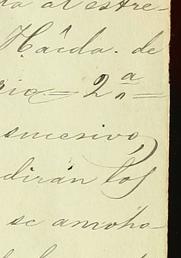 al estre-
Hâcda. de
ria = 2ª =
sucesivo,
dirán los
se amoho-